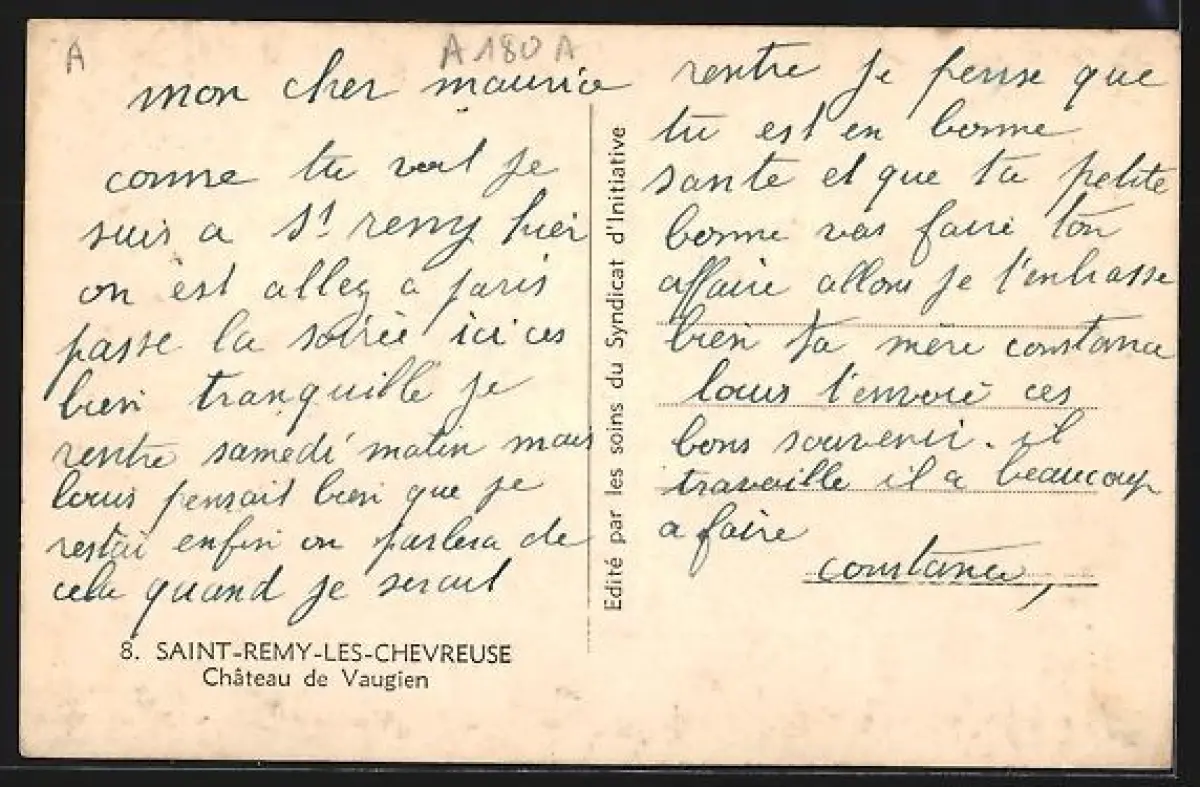 A
A 180 A
mon cher maurice
comme tu voit je
suis a St remy hier
on est allez a paris
passe la soirée ici ces
bien tranquille je
rentre samedi matin mais
louis pensait bien que je
restai enfin on parlera de
cela quand je serait
8. SAINT-REMY-LES-CHEVREUSE
Château de Vaugien
Edité par les soins du Syndicat d'Initiative
rentre je pense que
tu est en bonne
sante et que ta petite
bonne vas faire ton
affaire allons je t'enbrasse
bien ta mère constance
louis t'envoie ces
bons souvenir. il
travaille il a beaucoup
a faire
constance,